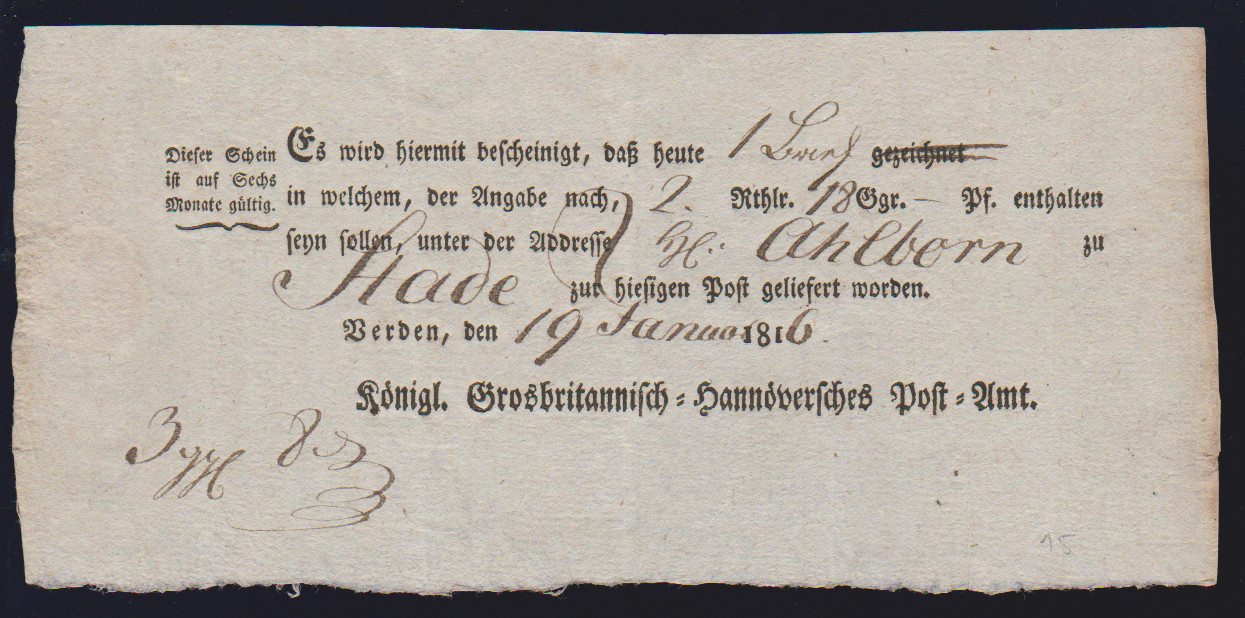 Dieser Schein
ist auf Sechs
Monate gültig.
Es wird hiermit bescheinigt, daß heute 1 Brief gezeichnet
in welchem, der Angabe nach, 2. Rthlr. 18 Ggr. — Pf. enthalten
seyn sollen, unter der Addresse H. Ahlborn zu
Stade zur hiesigen Post geliefert worden.
Verden, den 19 Januar 1816.
Königl. Grosbritannisch-Hannöversches Post-Amt.
3 ggr 8
15